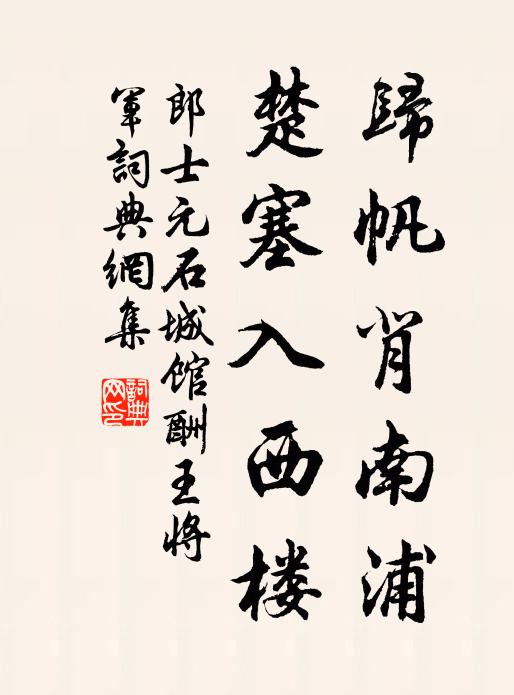 歸帆背南浦
楚塞入西楼
郎士元石城馆酬王将
軍詞典網集
詞典
网印